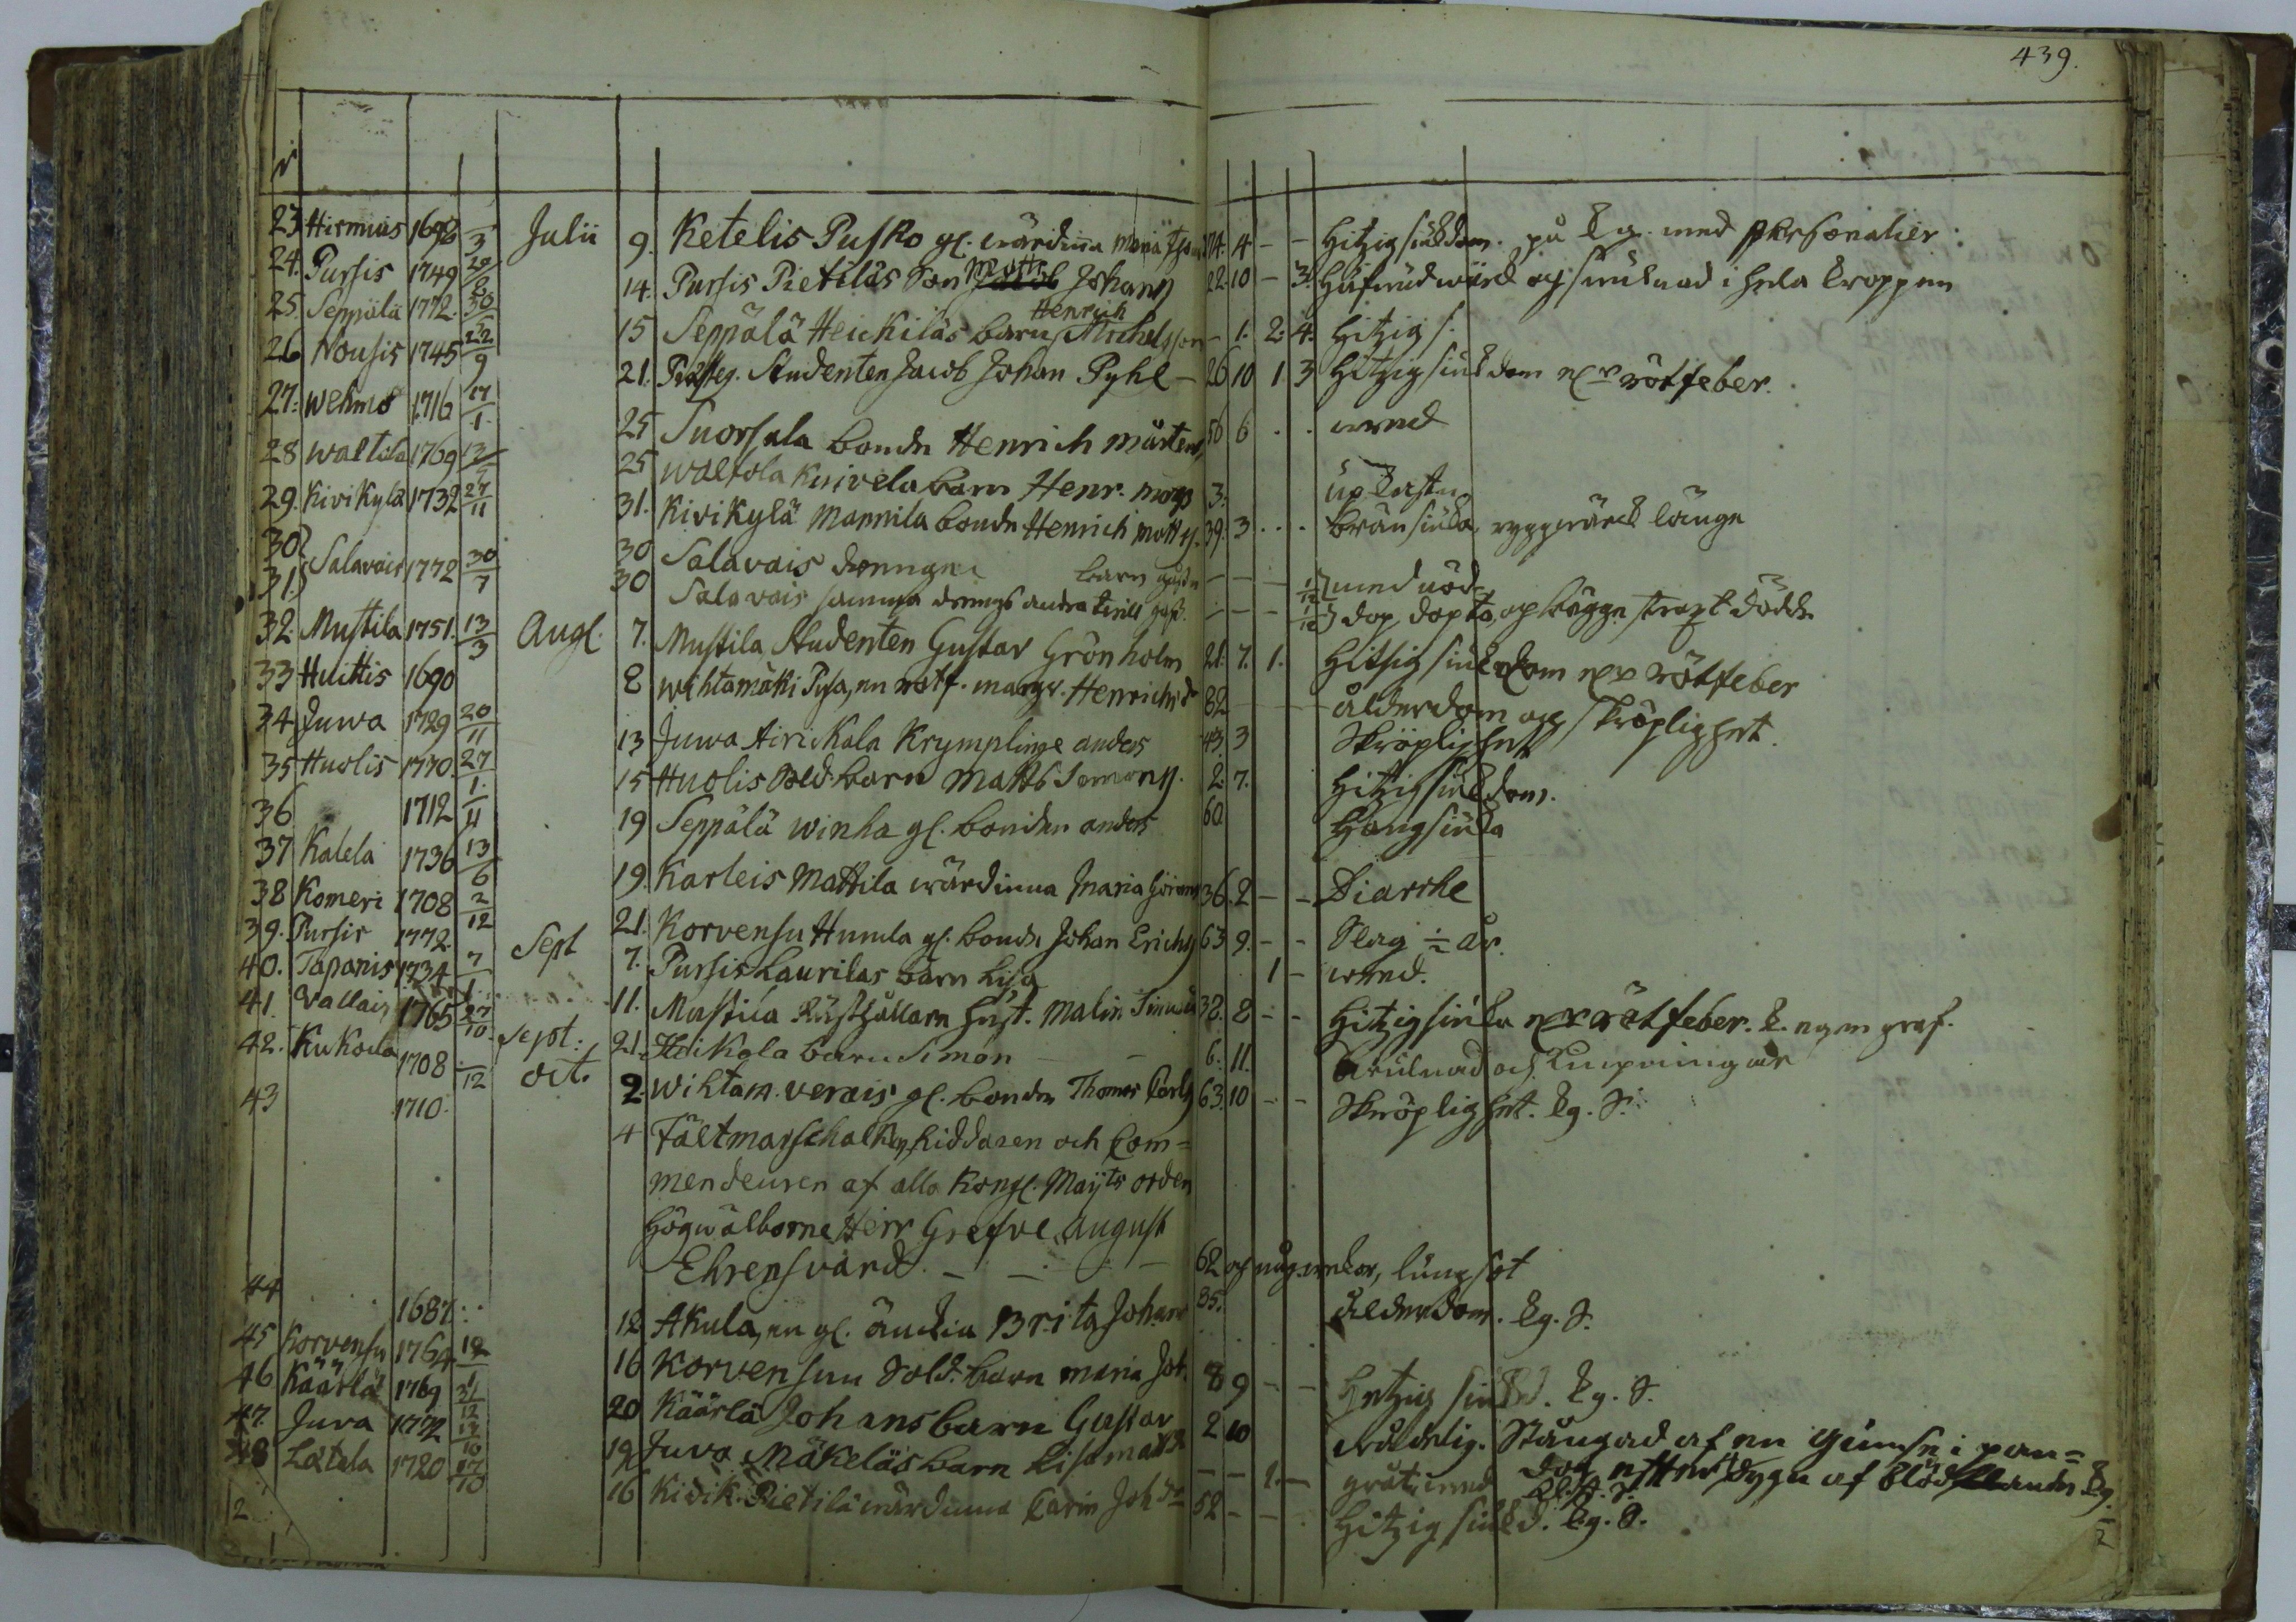 439.
N
23 Hirmius 1698 /3 Julii 9. Ketelis Pusko gl. wärdinna Maria 74. 4 - - Hitzig siukdom. på Kg. med personalier
24. Pursis 1749 20/8 14. Pursis Pietiläs Son Matts Jacob Johansson 22 10 - 3. Hufvudwärk och siuknad i hela kroppen
25. Seppälä 1772. 30/5 15 Seppälä Heickiläs barn Henrich Michelsson - 1. 2. 4. Hitzig s.
26 Nousis 1745 22/9 21. Prästeg. Studenten Jacob Johan Pyhl - 26 10 1 3 Hitzig siukdom rötfeber.
27. Wehmo 1716 17/1 25 Suorsala bonde Henrich Mårtens 56 6 . . wred
28 Waltila 1769 13/5 25 Waltola Knivela barn Henr. 3.
29. Kivikylä 1732 27/11 31. Kivikylä Mannila bonde Henrich Matts. 39. 3 . . . Bränsiuka, ryggwärck länge
30 Salavais 1772 30/7 30 Salavais drengen barn - - - 1/12 med nöd-
31. 30 Salavais samma drengs andra - - - 1/12 dop döpta, och bägge strax dödde
32. Mustila 1751. 13/3 Aug. 7. Mustila Studenten Gustav Grönholm 21. 7. 1. Hitsig siukdom rötfeber
33 Huittis 1690 8 Wihtamäki Pysa, en rotf. Henrichsdr 82 - - - ålderdom och skröplighet.
34 Juwa 1729 20/11 13 Juwa Airikala Krymplinge anders 43. 3 Skröplighet
35 Huolis 1770. 27/1 15 Huolis Sold. barn Matts Simons. 2. 7. Hitzig siukdom.
36 1712 /11 19 Seppälä Winha gl. bonden anders 60 Hongsiuka
37 Kalela 1736 13/6 19. Karleis Mattila wärdinna Maria Görans 36. 2 - - Diarrhe
38 Komeri 1708 2/12 21. Korvensu Humla gl. bonde Johan Erichs. 63 9. - - Slag ½ år.
39. Pursis 1772. Sept 7. Pursis Laurilas barn Lisa 1 - wred.
40. Tapanis 1734 7/1 11. Mustila Rusthållaren hust. Malin 38. 8 - - Hitzig siuka rötfeber. k. egen graf.
41. Vallais 1765 27/10 Sept: 21. Heikola barn Simon - - 6. 11. brulnad och knipningar
42. Kukola 1708 /12 oct. 2. Wihtam. Verais gl. bonden Thomas Carls 63. 10 - - Skröplighet. kg. S.
43 1710. 4 Fältmarschalken, Riddaren och Com=
mendeuren af alla Kongl. Maÿts orden
Högwälborne Herr Grefve, August
Ehrensvärd. - - - 62 och någ. wekor, lungsot
44 1687. 12 Akula, en gl. änckia Brita Johans 85. ålderdom. kg. S.
45 Korvensu 1764 12/1 16 Korvensuu Sold. barn Maria Joh. 8 9 - - Hetzig siukd. kg. S.
46 Käärlä 1769 31/12 20 Käärlä Johans barn Gustav 2 10 Stångad af en gumse i pan=
47. Juva 1772 12/10 19. Juva Mäkeläs barn Lisa Matts - - 1. - dog efter dygn af blod
48 Lätala 1720 17/10 16 Kivik. Pietilä wärdinna Carin Joh dr 52 - - Hitzig siukd. kg. S.